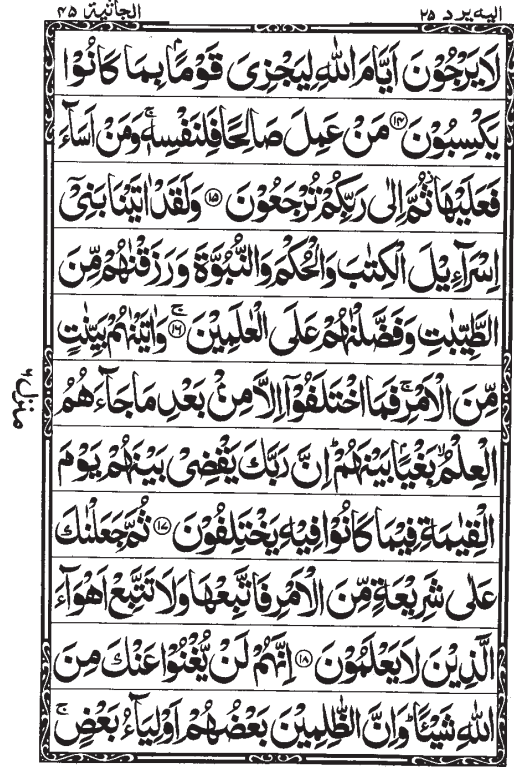 اليه يرد ٢٥
الجاثية ٤٥
لَا يَرْجُوْنَ اَيَّامَ اللّٰهِ لِيَجْزِىَ قَوْمًۢا بِمَا كَانُوْا
يَكْسِبُوْنَ ﴿۱۴﴾ مَنْ عَمِلَ صَالِحًا فَلِنَفْسِهٖ ۚ وَمَنْ اَسَآءَ
فَعَلَيْهَا ؗ ثُمَّ اِلٰى رَبِّكُمْ تُرْجَعُوْنَ ﴿۱۵﴾ وَلَقَدْ اٰتَيْنَا بَنِىْۤ
اِسْرَآءِيْلَ الْكِتٰبَ وَالْحُكْمَ وَالنُّبُوَّةَ وَرَزَقْنٰهُمْ مِّنَ
الطَّيِّبٰتِ وَفَضَّلْنٰهُمْ عَلَى الْعٰلَمِيْنَ ۚ﴿۱۶﴾ وَاٰتَيْنٰهُمْ بَيِّنٰتٍ
مِّنَ الْاَمْرِ ۚ فَمَا اخْتَلَفُوْۤا اِلَّا مِنْۢ بَعْدِ مَا جَآءَهُمُ
الْعِلْمُ ۙ بَغْيًۢا بَيْنَهُمْ ؕ اِنَّ رَبَّكَ يَقْضِىْ بَيْنَهُمْ يَوْمَ
الْقِيٰمَةِ فِيْمَا كَانُوْا فِيْهِ يَخْتَلِفُوْنَ ﴿۱۷﴾ ثُمَّ جَعَلْنٰكَ
عَلٰى شَرِيْعَةٍ مِّنَ الْاَمْرِ فَاتَّبِعْهَا وَلَا تَتَّبِعْ اَهْوَآءَ
الَّذِيْنَ لَا يَعْلَمُوْنَ ﴿۱۸﴾ اِنَّهُمْ لَنْ يُّغْنُوْا عَنْكَ مِنَ
اللّٰهِ شَيْئًا ؕ وَاِنَّ الظّٰلِمِيْنَ بَعْضُهُمْ اَوْلِيَآءُ بَعْضٍ ۚ
منزل ۶